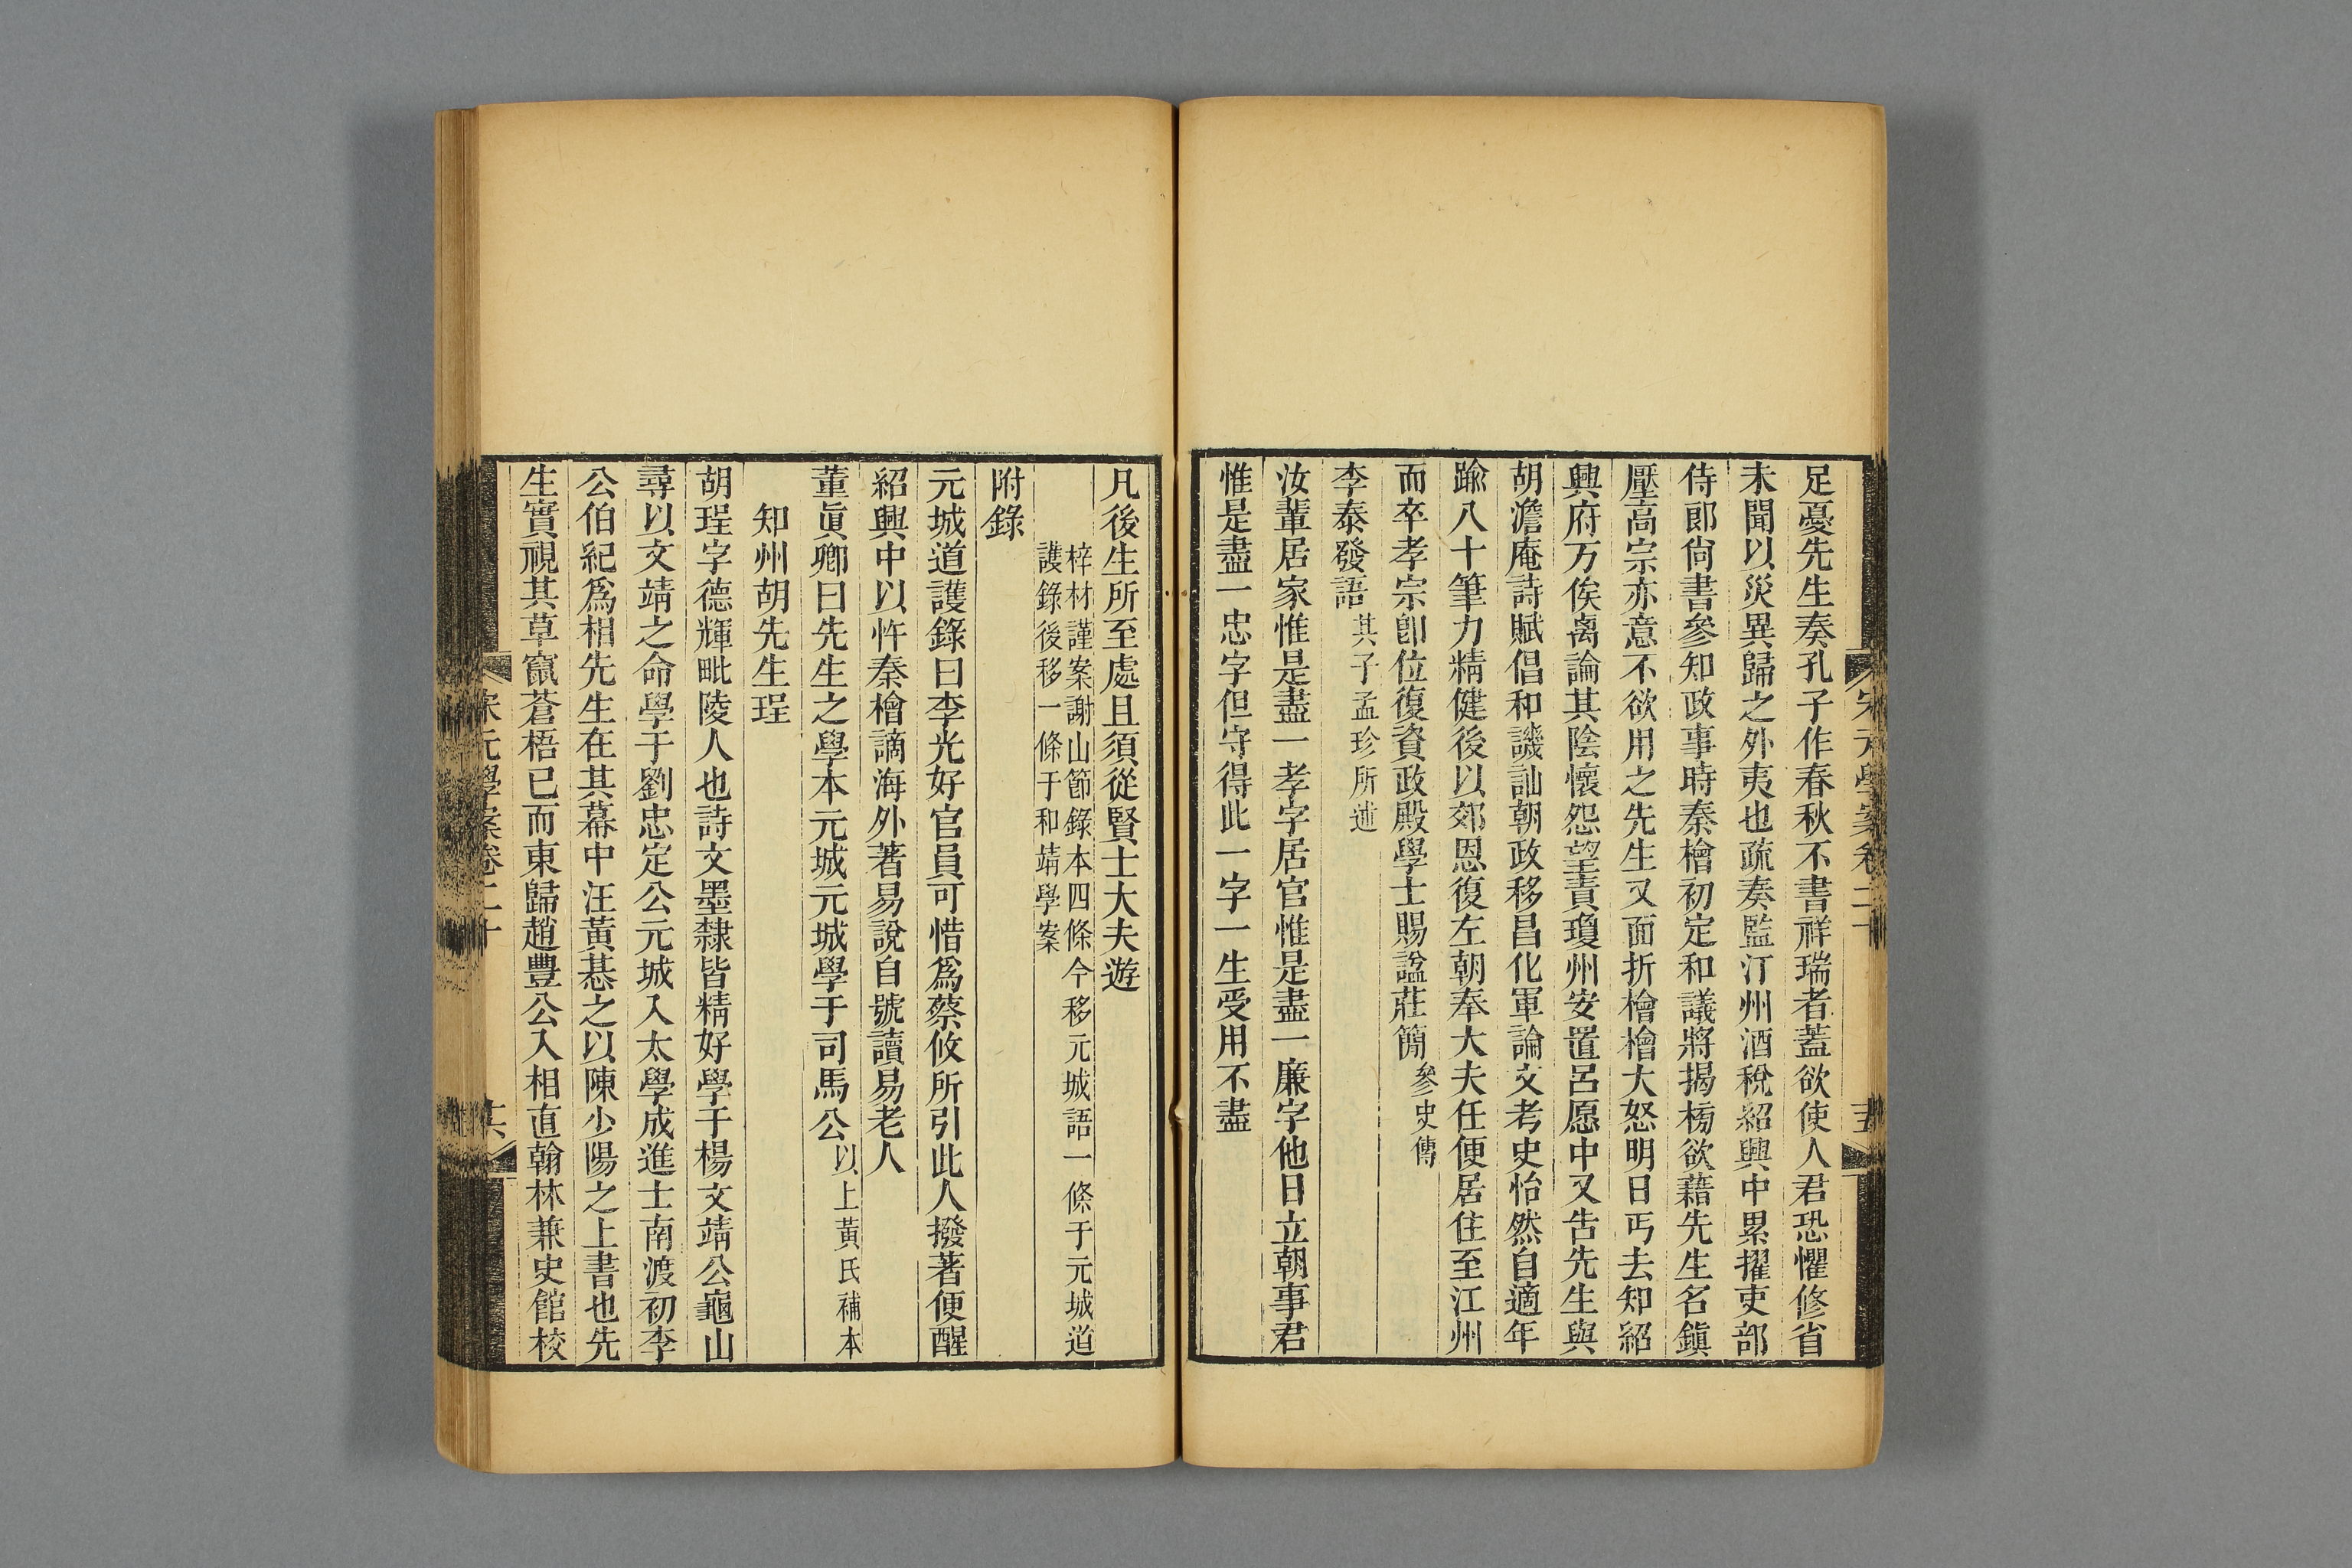 足憂先生奏孔子作春秋不書祥瑞者蓋欲使人君恐懼修省
未聞以災異歸之外夷也疏奏監汀州酒稅紹興中累擢吏部
侍郞尙書參知政事時秦檜初定和議將揭榜欲藉先生名鎭
壓高宗亦意不欲用之先生又面折檜檜大怒明日丐去知紹
興府万俟卨論其陰懷怨望責瓊州安置呂愿中又告先生與
胡澹庵詩賦倡和譏訕朝政移昌化軍論文考史怡然自適年
踰八十筆力精健後以郊恩復左朝奉大夫任便居住至江州
而卒孝宗卽位復資政殿學士賜諡莊簡參史傳
李泰發語其子孟珍所述
汝輩居家惟是盡一孝字居官惟是盡一廉字他日立朝事君
惟是盡一忠字但守得此一字一生受用不盡
宋元學案卷二十
凡後生所至處且須從賢士大夫遊
梓材謹案謝山節錄本四條今移元城語一條于元城道
護錄後移一條于和靖學案
附錄
元城道護錄曰李光好官員可惜爲蔡攸所引此人撥著便醒
紹興中以忤秦檜謫海外著易說自號讀易老人
董眞卿曰先生之學本元城元城學于司馬公以上黃氏補本
知州胡先生珵
胡珵字德輝毗陵人也詩文墨隸皆精好學于楊文靖公龜山
尋以文靖之命學于劉忠定公元城入太學成進士南渡初李
公伯紀爲相先生在其幕中汪黃惎之以陳少陽之上書也先
生實視其草竄蒼梧已而東歸趙豐公入相直翰林兼史館校
宋元學案卷二十